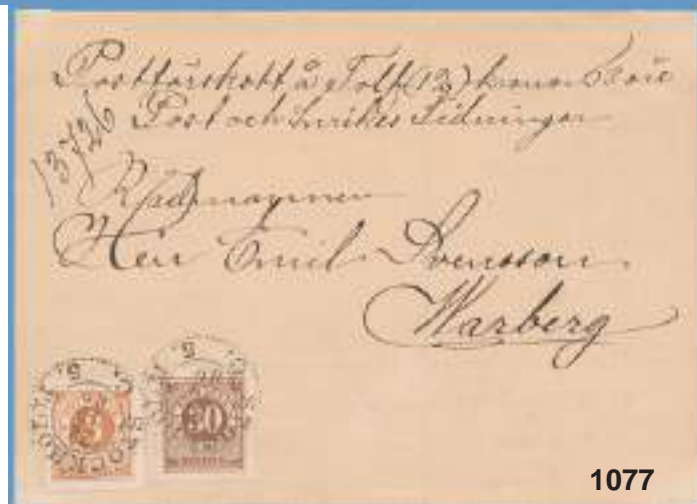 Postförskott å Tolf (12) kronor 62 öre
Post och Inrikes Tidningar
13726
Rådmannen
Herr Emil Svensson
Warberg
30
1077